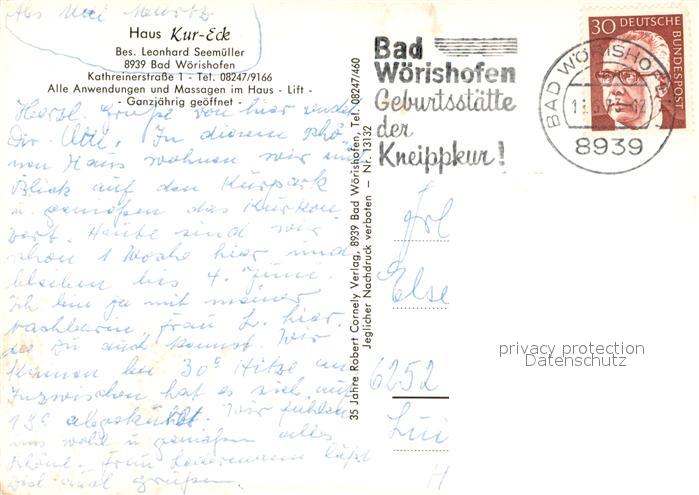 Haus Kur-Eck
Bes. Leonhard Seemüller
8939 Bad Wörishofen
Kathreinerstraße 1 - Tel. 08247/9166
Alle Anwendungen und Massagen im Haus - Lift -
- Ganzjährig geöffnet -
Herzl. Grüße von hier sendet
Dir, In diesem schö-
nen Haus wohnen wir mit
Blick auf den Kurpark
u. genießen das Kurkon-
zert. Heute sind wir
schon 1 Woche hier und
bleiben bis 4. Juni.
Ich bin ja mit meiner
Nachbarin, Frau L. hier,
die Du auch kennst. Wir
kamen bei 30° Hitze an
Inzwischen hat es sich auf
13° abgekühlt. Wir fühlen
uns wohl u. genießen alles
Schöne. Frau läßt
Dich grüßen.
35 Jahre Robert Cornely Verlag, 8939 Bad Wörishofen, Tel. 08247/460
Jeglicher Nachdruck verboten - Nr. 13132
Bad
Wörishofen
Geburtsstätte
der
Kneippkur!
BAD WÖRISHOFEN
8939
30 DEUTSCHE
BUNDESPOST
Frl
Else
6252
privacy protection
Datenschutz